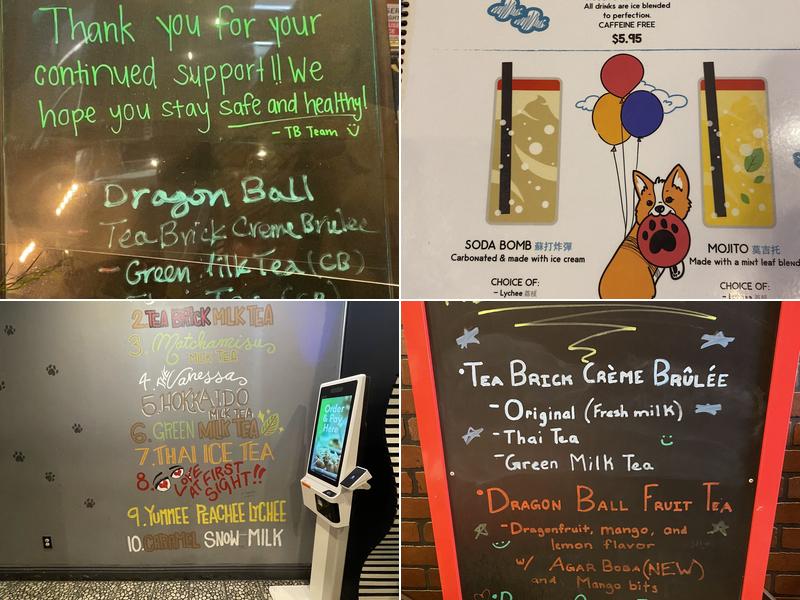 Thank you for your
continued support!! We
hope you stay safe and healthy!
- TB Team
Dragon Ball
Tea Brick Creme Brulee
- Green Milk Tea (CB)
All drinks are ice blended
to perfection.
CAFFEINE FREE
$5.95
SODA BOMB 蘇打炸彈
Carbonated & made with ice cream
CHOICE OF:
- Lychee
MOJITO 莫吉托
Made with a mint leaf blend
CHOICE OF:
2. TEA BRICK MILK TEA
3. Matchamisu
MILK TEA
4. Vanessa
5. HOKKAIDO
MILK TEA
6. GREEN MILK TEA
7. THAI ICE TEA
8. LOVE
AT FIRST
SIGHT!!
9. YUMMEE PEACHEE LYCHEE
10. CARAMEL SNOW MILK
Order
& Pay
Here
• TEA BRICK CRÈME BRÛLÉE
- Original (Fresh milk)
- Thai Tea
- Green Milk Tea
• DRAGON BALL FRUIT TEA
- Dragonfruit, mango, and
lemon flavor
w/ AGAR BOBA (NEW)
and Mango bits